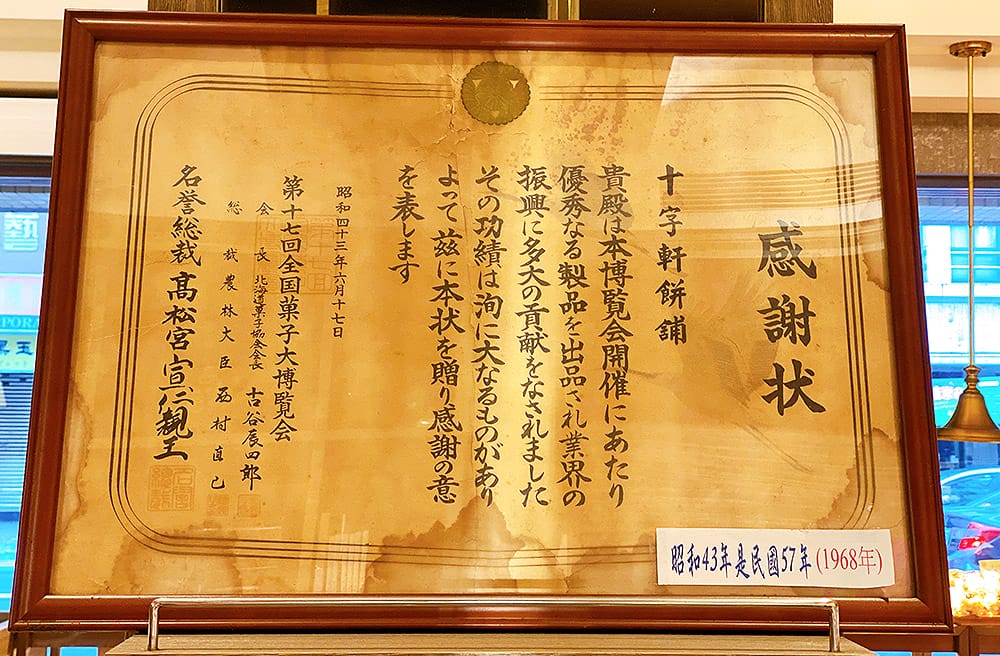 感謝状
十字軒餅舗
貴殿は本博覧会開催にあたり
優秀なる製品を出品され業界の
振興に多大の貢献をなされました
その功績は洵に大なるものがあり
よって茲に本状を贈り感謝の意
を表します
昭和四十三年六月十七日
第十七回全国菓子大博覧会
会長 北海道菓子協会会長 古谷辰四郎
総裁 農林大臣 西村直己
名誉総裁 高松宮宣仁親王
昭和43年是民國57年(1968年)
藝
PORA
黑玉